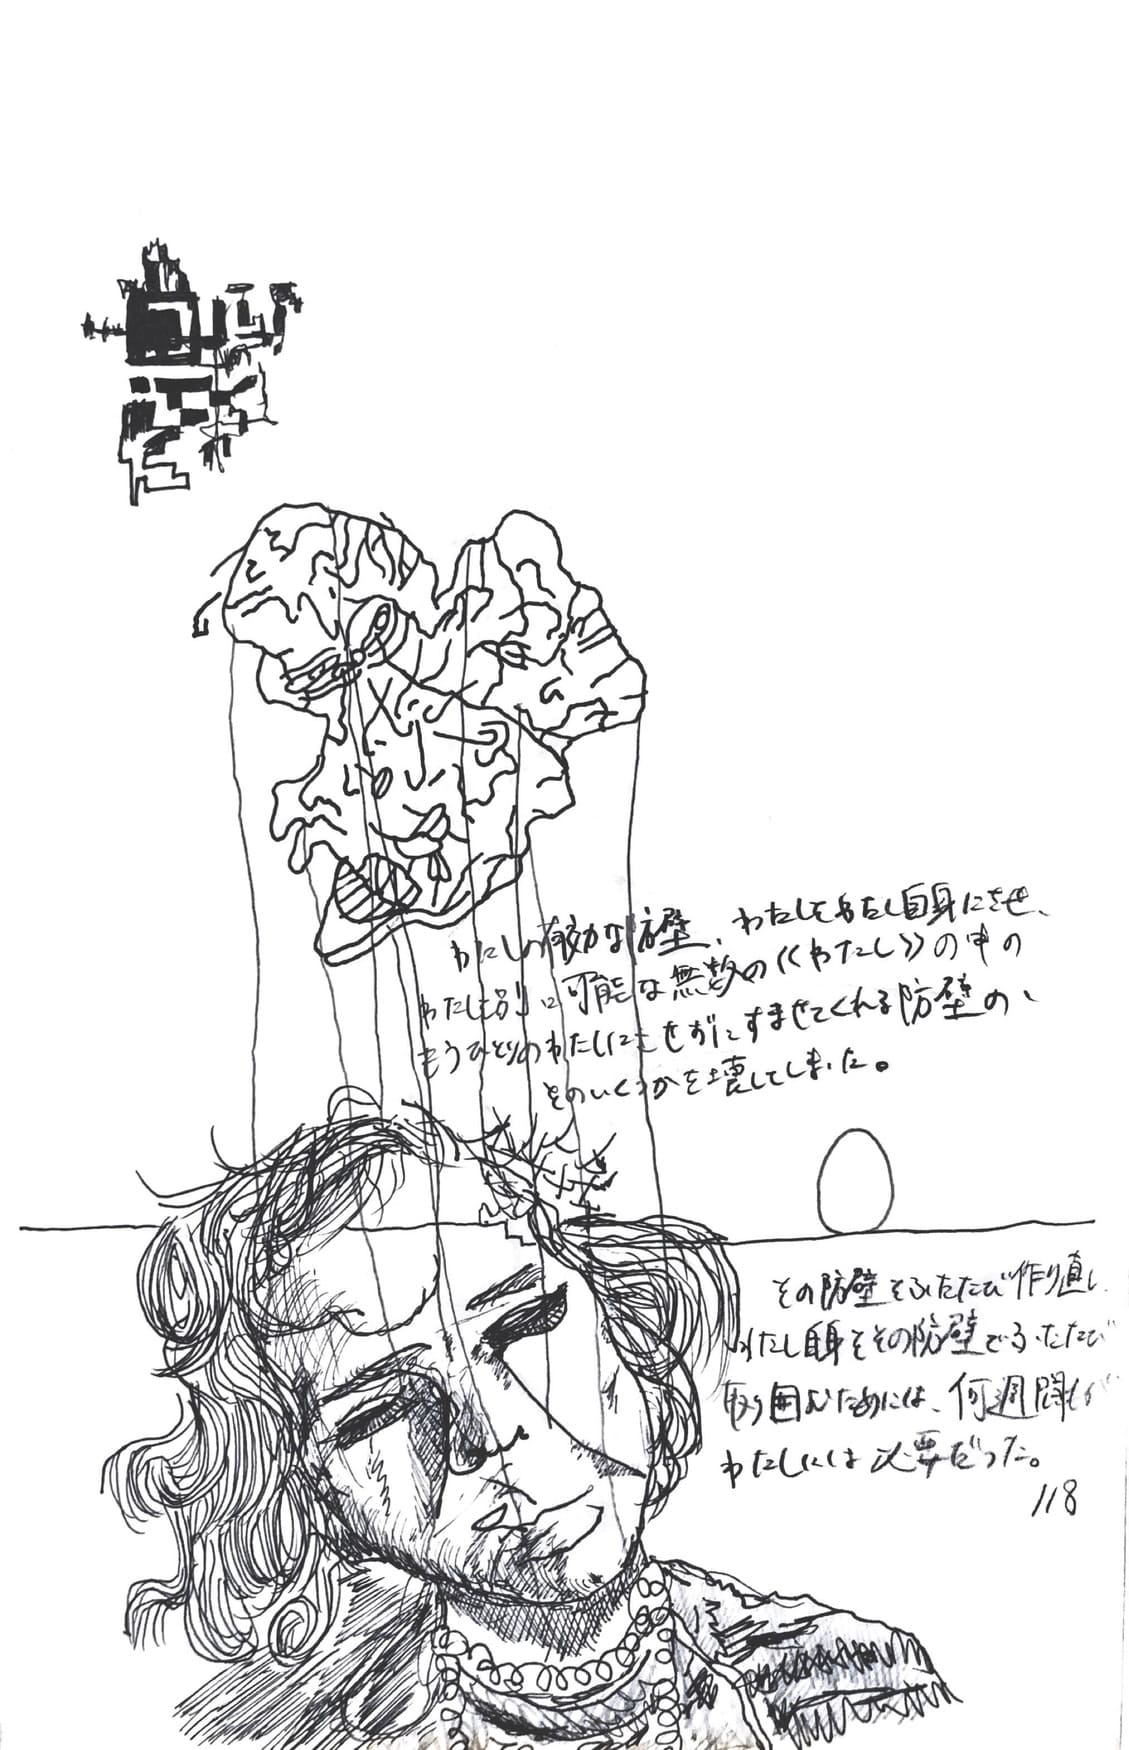 わたしの有効な防壁、わたしをわたし自身にさせ、
わたしを別に可能な無数の《わたし》の中の
もうひとりのわたしにさせずにすませてくれる防壁の、
そのいくつかを壊してしまった。
その防壁をふたたび作り直し
わたし自身をその防壁でふたたび
取り囲むためには、何週間もが
わたしには必要だった。
118